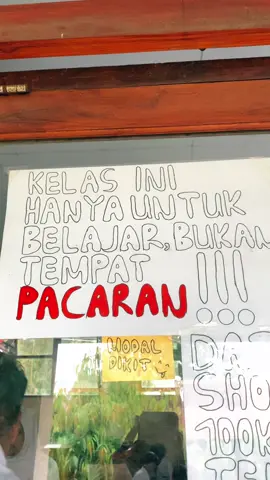 KELAS INI
HANYA UNTUK
BELAJAR, BUKAN
TEMPAT
PACARAN !!!
MODAL
DIKIT
SHO
100K